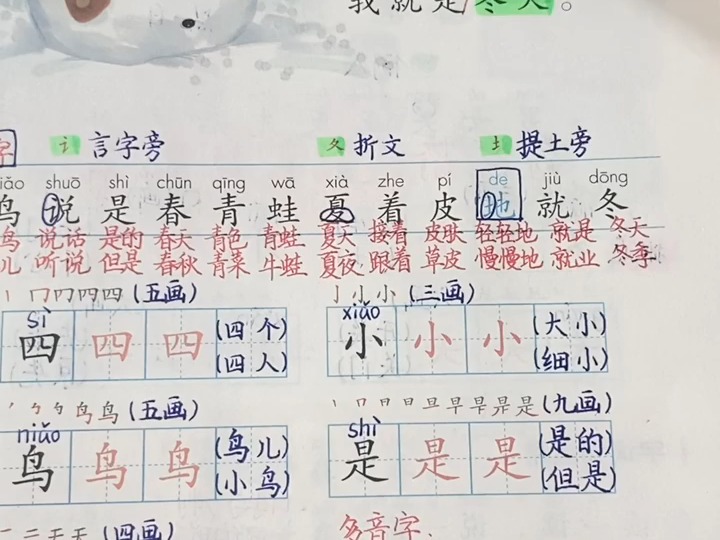 我就是冬天。
字 讠言字旁 夂折文 土提土旁
iǎo shuō shì chūn qīng wā xià zhe pí de jiù dōng
鸟 说 是 春 青 蛙 夏 着 皮 地 就 冬
鸟 说话 是的 春天 青色 青蛙 夏天 接着 皮肤 轻轻地 就是 冬天
儿 听说 但是 春秋 青菜 牛蛙 夏夜 跟着 草皮 慢慢地 就业 冬季
丨 冂 冂 四 四 (五画) 亅 小 小 (三画)
sì xiǎo
四 四 四 (四个) 小 小 小 (大小)
(四人) (细小)
鸟 鸟 (五画) 丨 冂 日 日 旦 早 早 昰 是 (九画)
niǎo shì
鸟 鸟 鸟 (鸟儿) 是 是 是 (是的)
(小鸟) (但是)
一 二 于 天 (四画) 多音字.